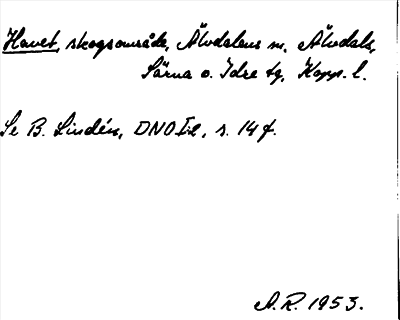 Havet, skogsområde, Älvdalens sn, Älvdals,
Särna o. Idre tg, Kopp. l.
Se B. Lindén, DNO I:2, s. 14 f.
A.R. 1953.